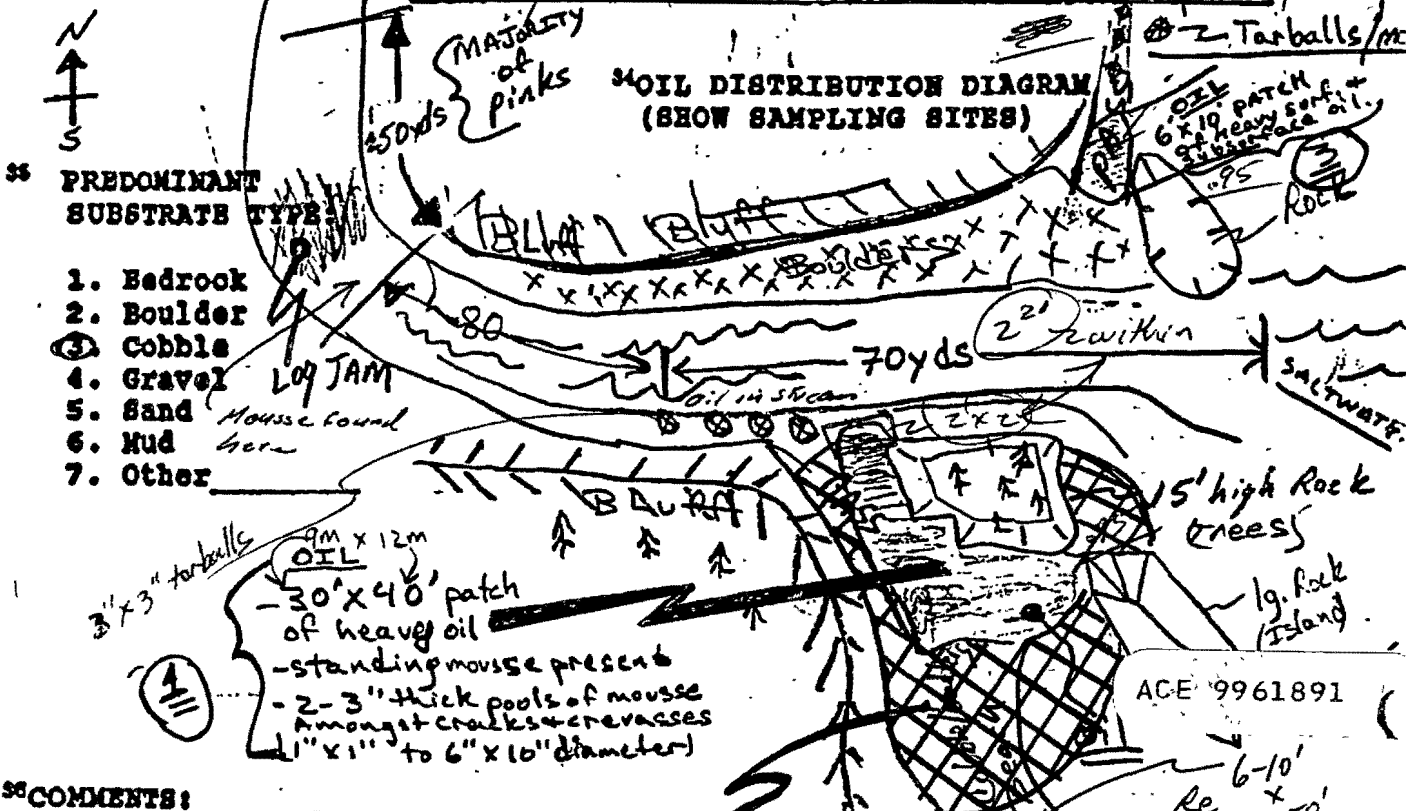 N
S
MAJORITY
of
pinks
250yds
34 OIL DISTRIBUTION DIAGRAM
(SHOW SAMPLING SITES)
Tarballs/
OIL
6' x 10' PATCH
of heavy surf. +
subsurface oil.
3
.95
ROCK
35 PREDOMINANT
SUBSTRATE TYPE:
1. Bedrock
2. Boulder
3. Cobble
4. Gravel
5. Sand
6. Mud
7. Other
Log JAM
Mousse found
here
Bluff
Bluff
Boulders
80
70yds
within
oil in stream
2' x 2'
SALTWATE.
Bluff
15' high Rock
(trees)
lg. Rock
(Island)
3" x 3" tarballs
9m x 12m
OIL
- 30' x 40' patch
of heavy oil
- standing mousse present
- 2-3" thick pools of mousse
Amongst cracks & crevasses
(1" x 1" to 6" x 10" diameter)
1
ACE 9961891
6-10'
x
36 COMMENTS: